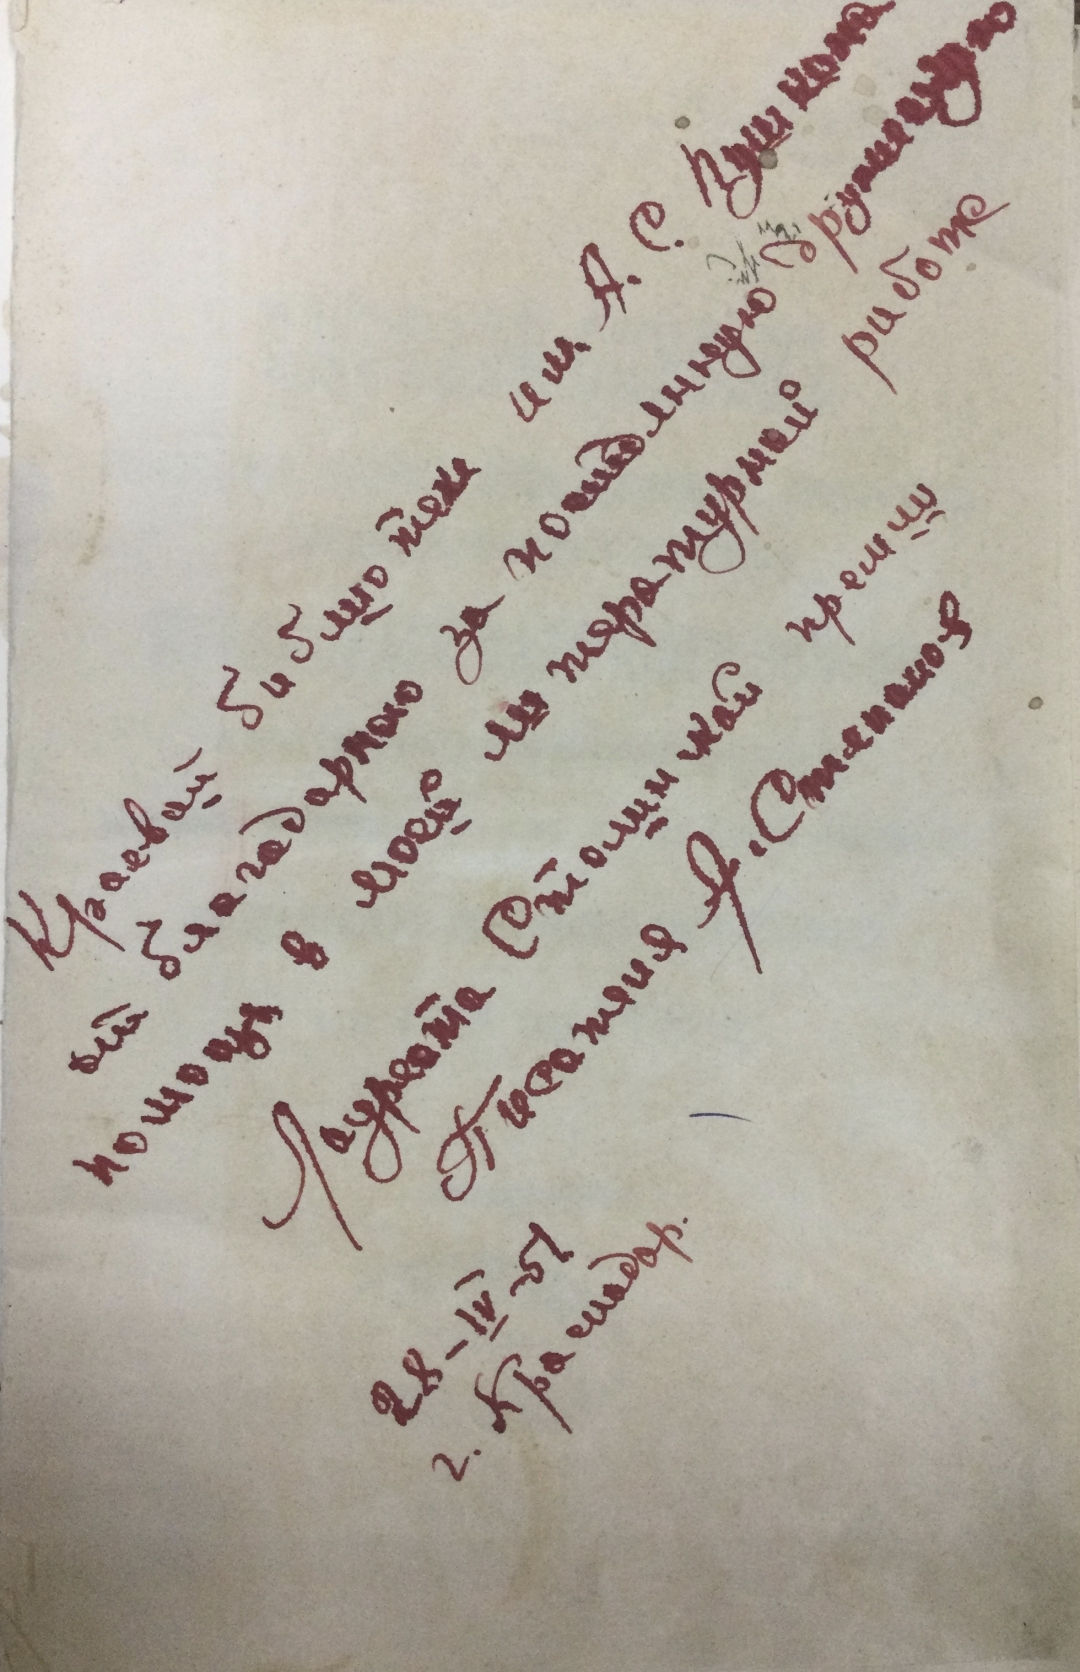 Краевой библиотеке им А. С. Пушкина
от благадарного за подлинную дружескую
помощь в моей литературной работе
Лауреата Столинской премии
Писателя А. Степанов
28-IV-51
г. Краснодар.